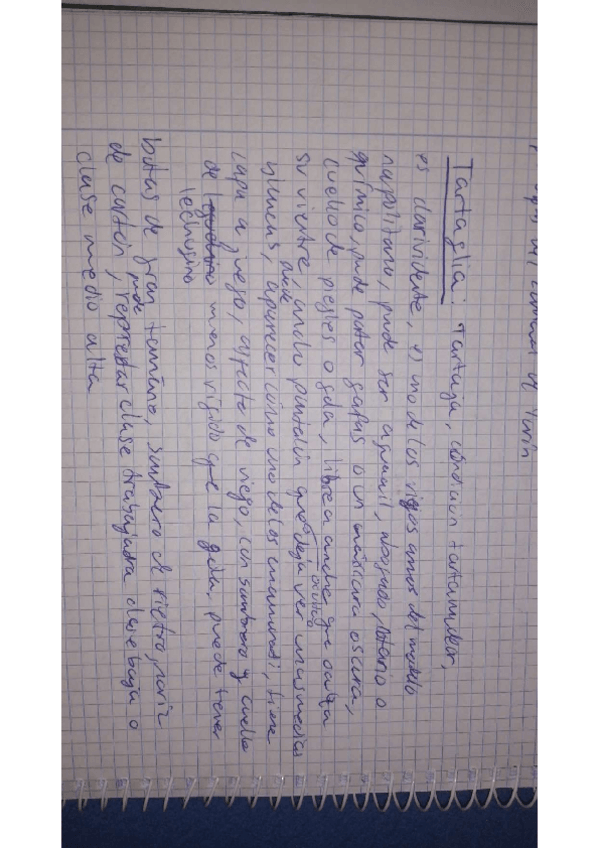 carnaval de Turín
Tartaglia: Tartaja, condición tartamudear,
es clarividente, es uno de los viejos amos del modelo
napolitano, puede ser aguacil, abogado, notario o
químico, puede portar gafas o un máscara oscura,
cuello de pliegles o gola, librea ancha que oculta
su vientre, ancho pantalón que deja ver unas medias
blancas, puede aparecer como uno de los enamorados, tiene
capa a juego, aspecto de viejo, con sombrero y cuello
de lechugino menos rígido que la gola, puede tener
botas de gran tamaño, sombrero de fieltro, nariz
de cartón, puede representar clase trabajadora clase baja o
clase media alta